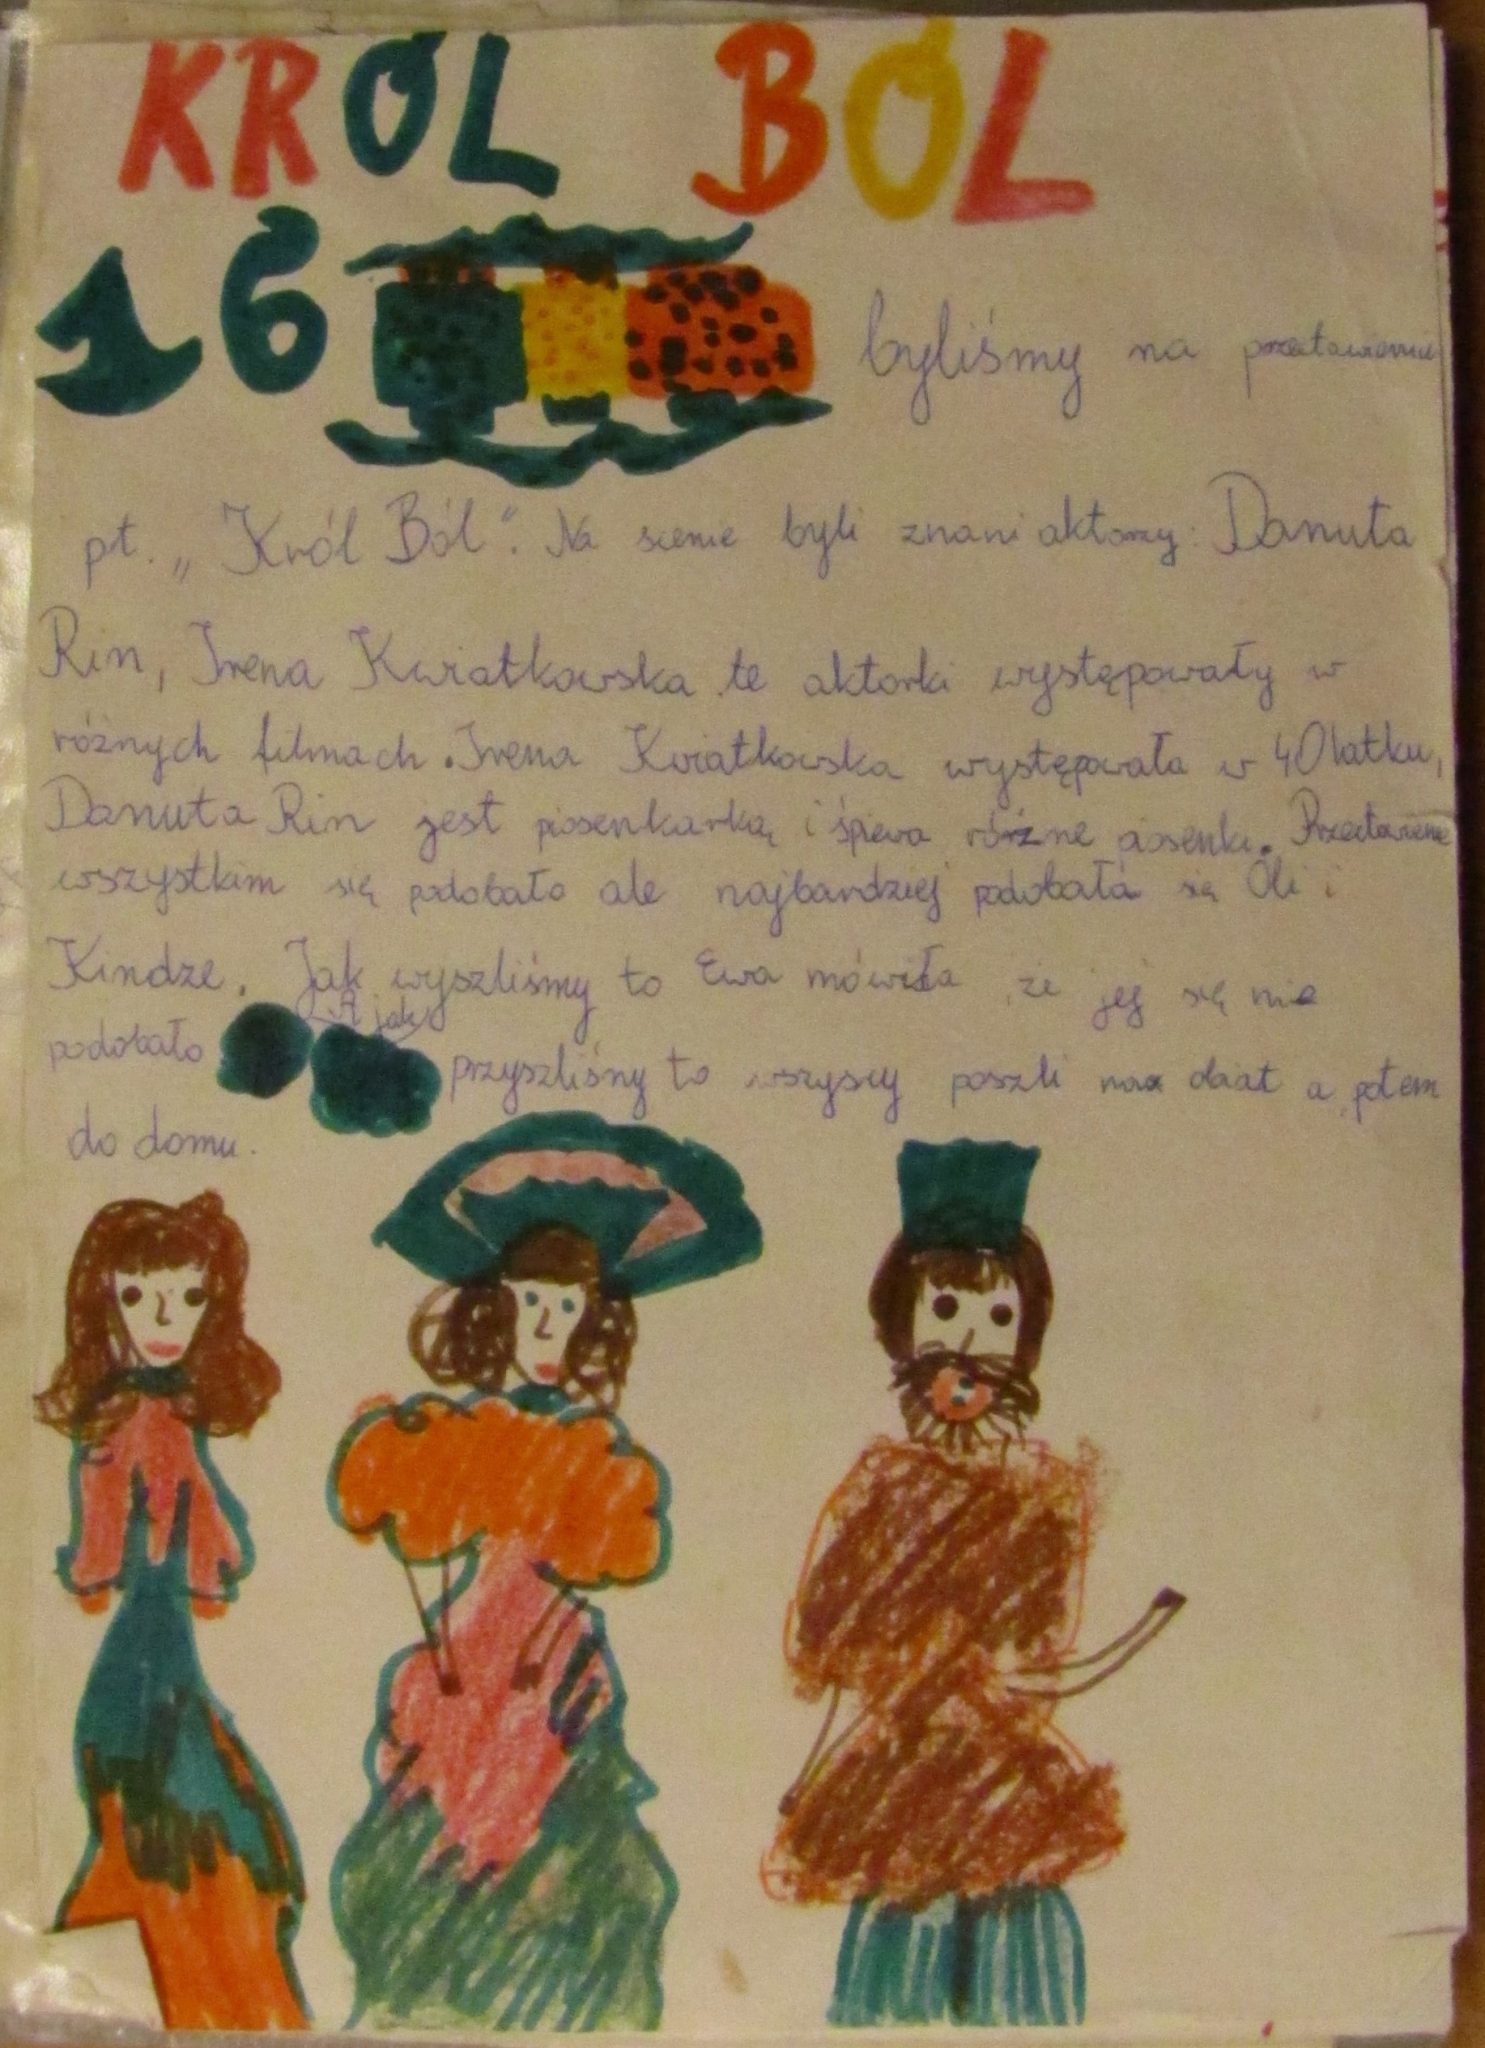 KRÓL BÓL
16 byliśmy na przectawieniu
pt. „Król Ból". Na scenie byli znani aktorzy: Danuta
Rin, Irena Kwiatkowska te aktorki występowały w
różnych filmach. Irena Kwiatkowska występowała w 40latku,
Danuta Rin jest piosenkarką i śpiewa różne piosenki. Przectawienie
wszystkim się podobało ale najbardziej podobała się Oli i
Kindze. Jak wyszliśmy to Ewa mówiła że jej się nie
A jak
podobało przyszliśmy to wszyscy poszli na obiat a potem
do domu.